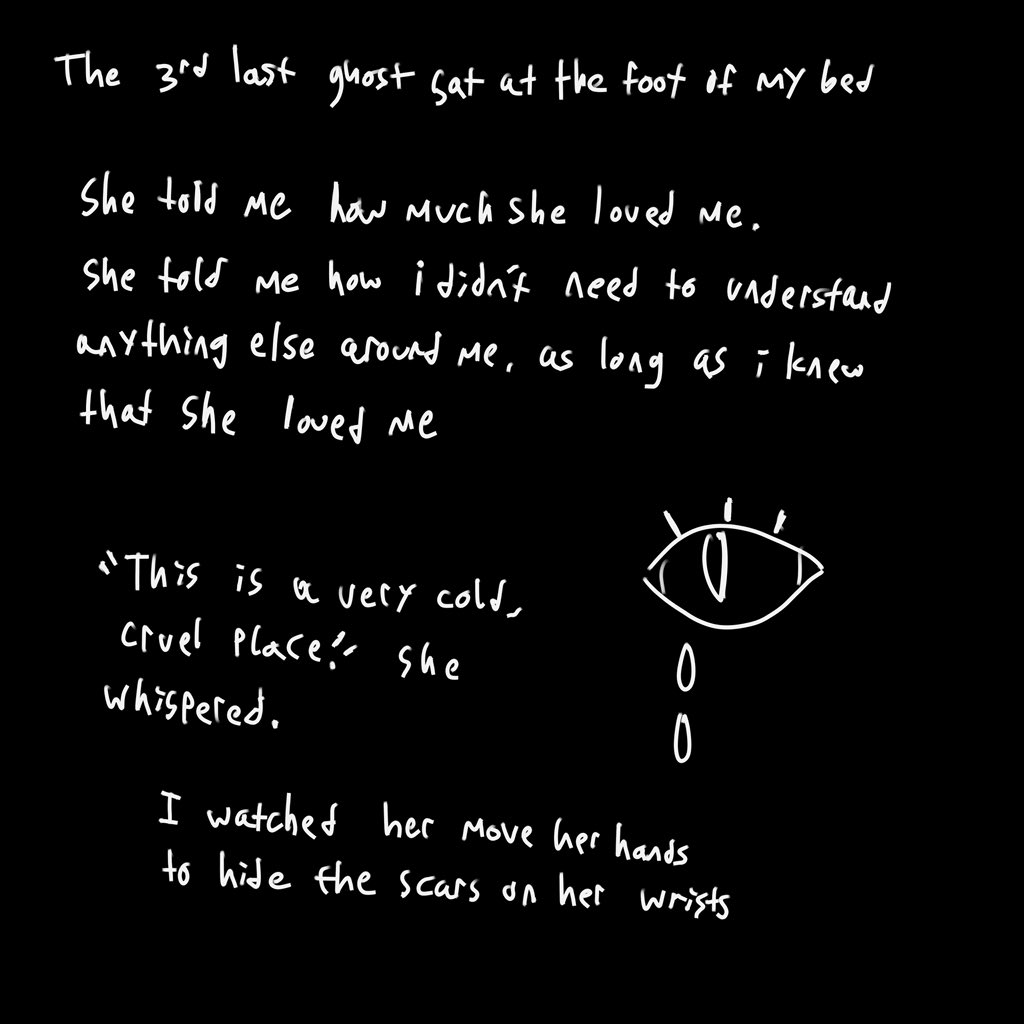 The 3rd last ghost sat at the foot of my bed
She told me how much she loved me.
She told me how i didn't need to understand
anything else around me, as long as i knew
that she loved me
"This is a very cold,
cruel place!" she
whispered.
I watched her move her hands
to hide the scars on her wrists